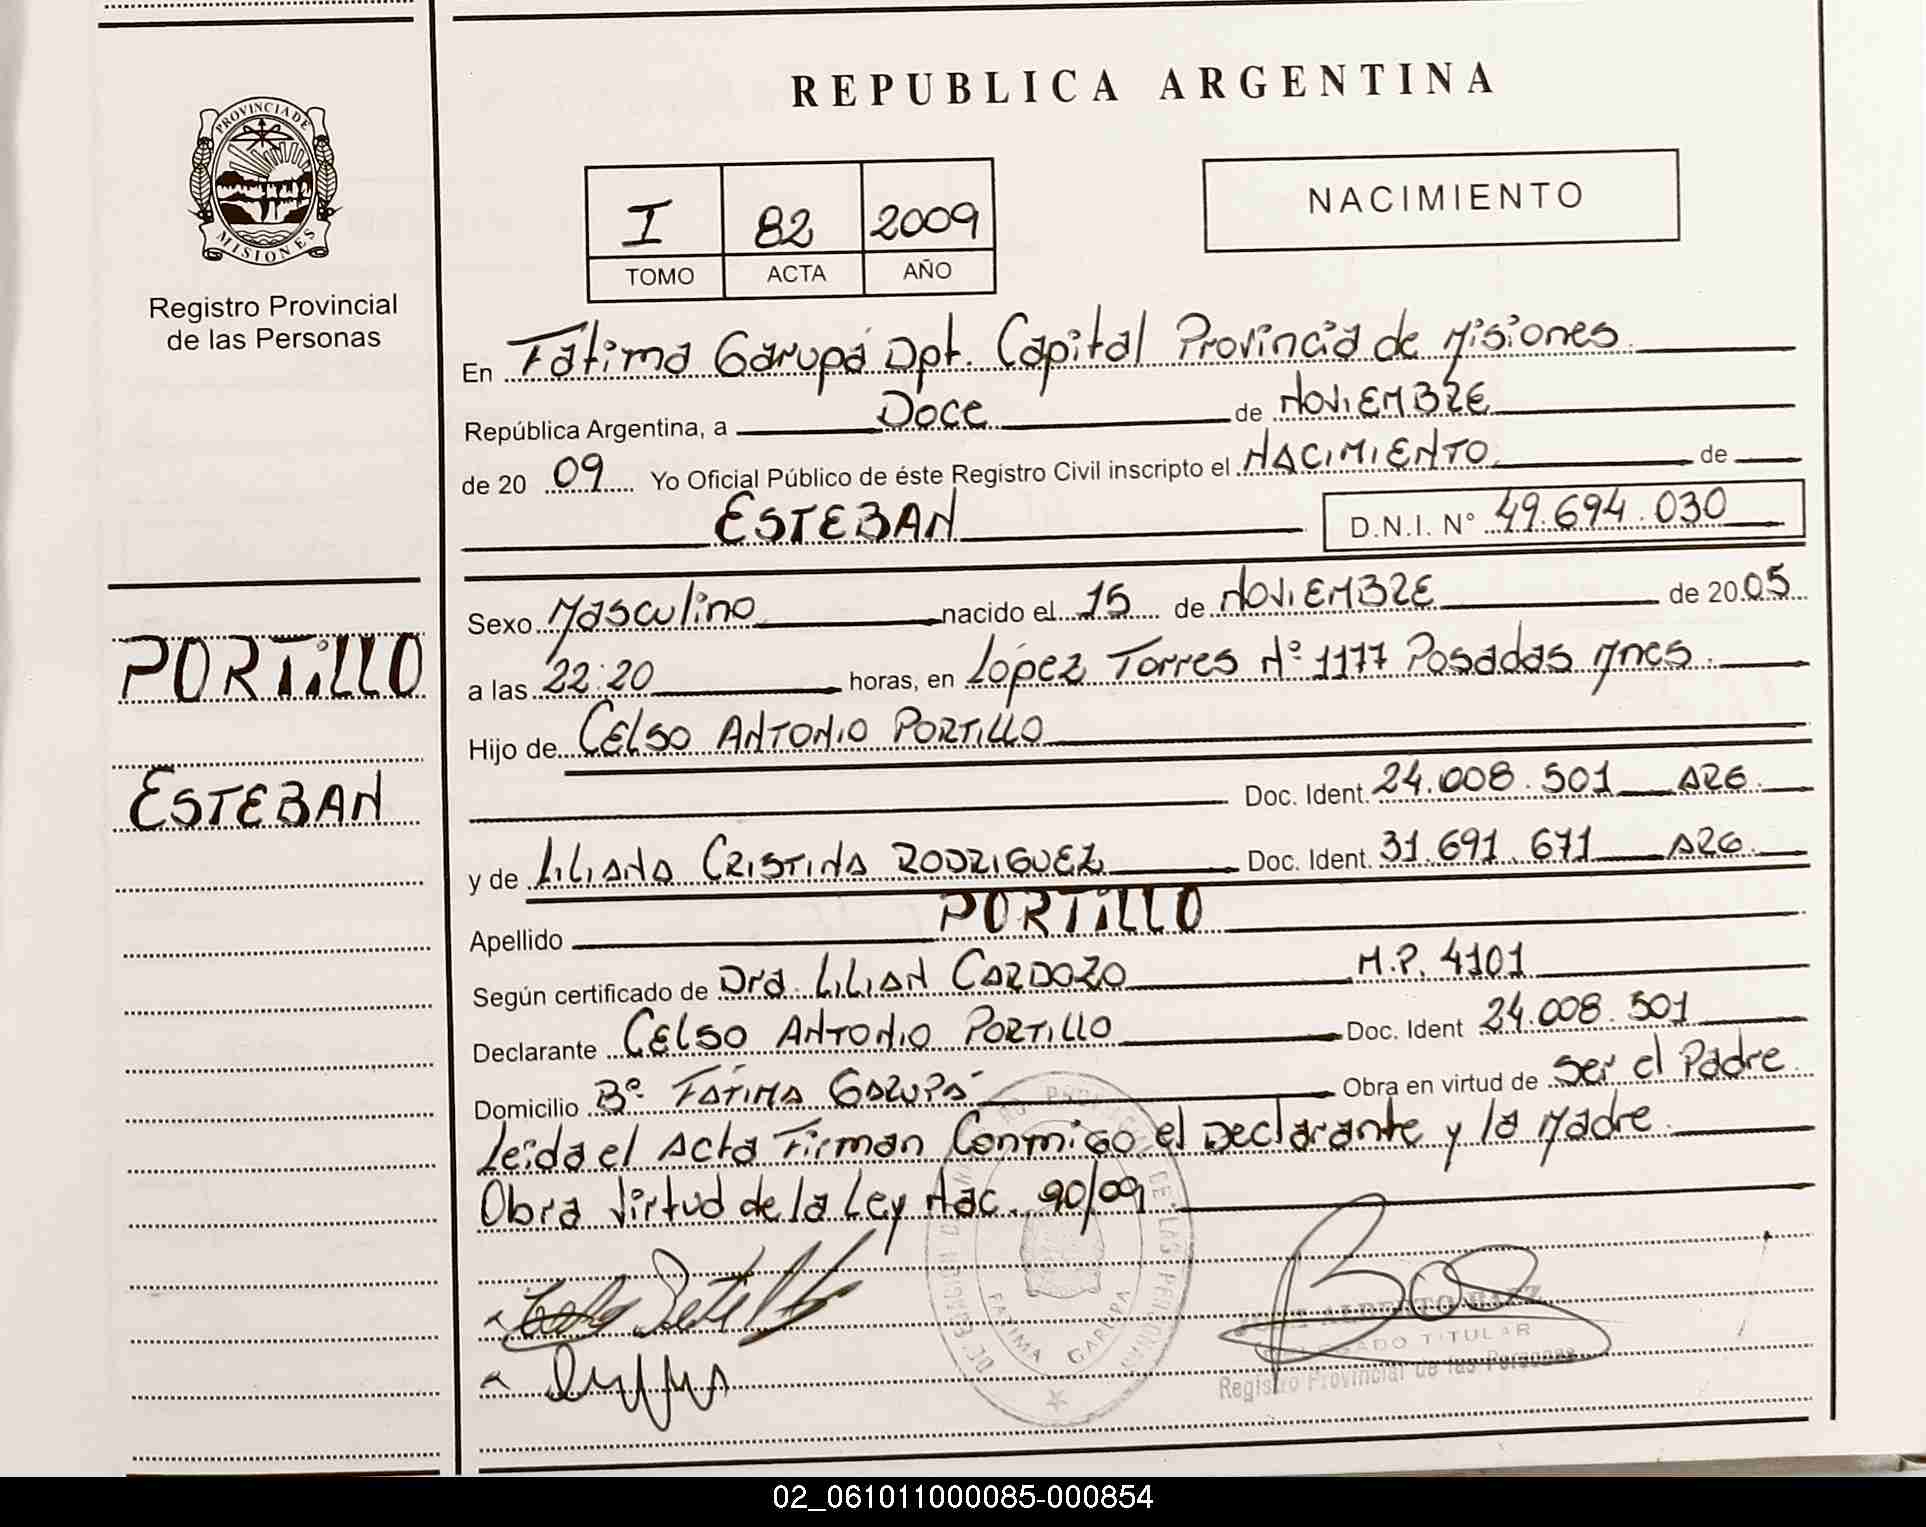 PROVINCIA DE
MISIONES
Registro Provincial
de las Personas
PORTILLO
ESTEBAN
REPUBLICA ARGENTINA
I 82 2009
TOMO ACTA AÑO
NACIMIENTO
En Fátima Garupá Dpt. Capital Provincia de Misiones
República Argentina, a Doce de NOVIEMBRE
de 20 09 Yo Oficial Público de éste Registro Civil inscripto el NACIMIENTO de
ESTEBAN D.N.I. N° 49.694.030
Sexo Masculino nacido el 15 de NOVIEMBRE de 20 05
a las 22:20 horas, en López Torres N° 1177 Posadas Mnes.
Hijo de CELSO ANTONIO PORTILLO
Doc. Ident. 24.008.501 ARG.
y de LILIANA CRISTINA RODRIGUEZ Doc. Ident. 31.691.671 ARG.
Apellido PORTILLO
Según certificado de Dra. LILIAN CARDOZO M.P. 4101
Declarante CELSO ANTONIO PORTILLO Doc. Ident 24.008.501
Domicilio B° FÁTIMA GARUPÁ Obra en virtud de ser el Padre
Leída el Acta Firman Conmigo el Declarante y la Madre
Obra Virtud de la Ley Nac. 90/09
DE LAS PERSONAS
FATIMA GARUPA
ALBERTO
TITULAR
Registro Provincial de las Personas
02_061011000085-000854